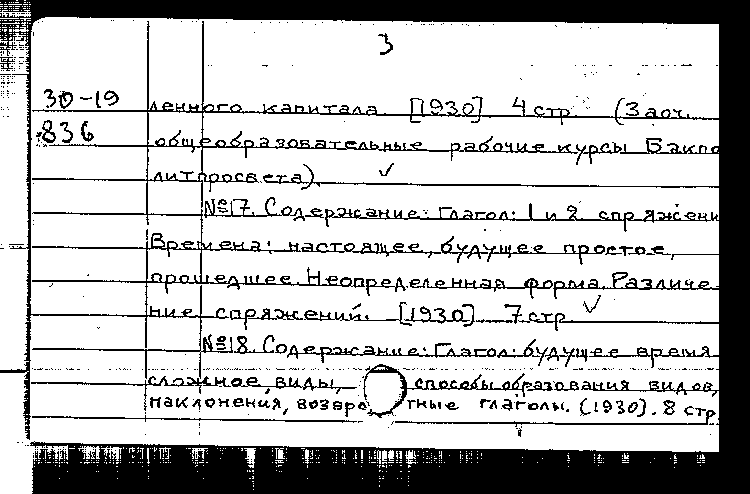 3
30-19 ленного капитала [1930] 4 стр (Заоч.
836 общеобразовательные рабочие курсы Бакпо
литпросвета).
№17. Содержание: Глагол: 1 и 2 спряжени
Времена: настоящее, будущее простое,
прошедшее. Неопределенная форма. Различе-
ние спряжений. [1930] 7 стр
№18. Содержание: Глагол: будущее время
сложное, виды, способы образования видов,
наклонения, возвратные глаголы. (1930). 8 стр.